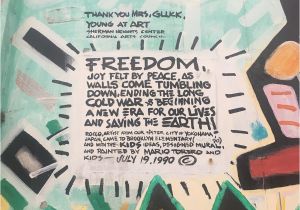 THANK YOU MRS. GLUCK,
YOUNG AT ART
SHERMAN HEIGHTS CENTER
CALIFORNIA ARTS COUNCIL
FREEDOM,
JOY FELT BY PEACE, AS
WALLS COME TUMBLING
DOWN, ENDING THE LONG
COLD WAR & BEGINNING
A NEW ERA FOR OUR LIVES
AND SAVING THE EARTH
ROCCO, ARTIST FROM OUR SISTER, CITY OF YOKOHAMA
JAPAN, CAME TO BROOKLYN ELEMENTARY
AND WITH THE KIDS IDEAS, DESIGNED MURAL
AND PAINTED BY MARIO TORERO AND
KIDS— JULY 19, 1990 ©